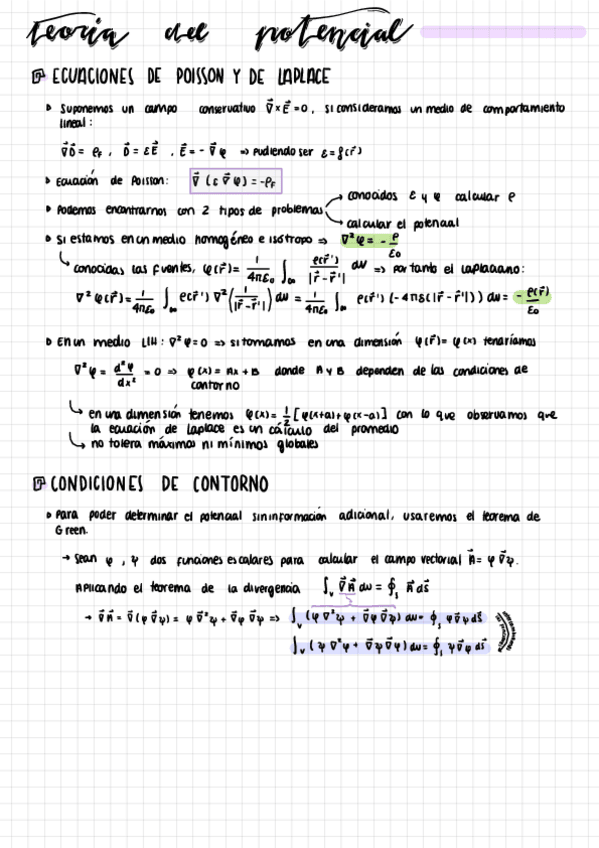 Teoría del potencial
ECUACIONES DE POISSON Y DE LAPLACE
Suponemos un campo conservativo ∇⃗×E⃗=0, si consideramos un medio de comportamiento
lineal:
∇⃗D⃗ = ρF , D⃗ = εE⃗ , E⃗ = -∇⃗φ ⇒ pudiendo ser ε=f(r⃗)
Ecuación de Poisson: ∇⃗(ε∇⃗φ) = -ρF
Podemos encontrarnos con 2 tipos de problemas → conocidos ε y φ calcular ρ
→ calcular el potencial
Si estamos en un medio homogéneo e isótropo ⇒ ∇²φ = - ρ/ε0
↳ conocidas las fuentes, φ(r⃗) = 1/4πε0 ∫∞ ρ(r⃗')/|r⃗-r⃗'| dv ⇒ por tanto el laplaciano:
∇²φ(r⃗) = 1/4πε0 ∫∞ ρ(r⃗') ∇²(1/|r⃗-r⃗'|) dv = 1/4πε0 ∫∞ ρ(r⃗') (-4πδ(|r⃗-r⃗'|)) dv = - ρ(r⃗)/ε0
En un medio LIH: ∇²φ=0 ⇒ si tomamos en una dimensión φ(r⃗)= φ(x) tenaríamos
∇²φ = d²φ/dx² = 0 ⇒ φ(x) = Ax + B donde A y B dependen de las condiciones de
contorno
↳ en una dimensión tenemos φ(x) = 1/2 [φ(x+a)+φ(x-a)] con lo que observamos que
la ecuación de Laplace es un cálculo del promedio
↳ no tolera máximos ni mínimos globales
CONDICIONES DE CONTORNO
Para poder determinar el potencial sin información adicional, usaremos el teorema de
Green.
→ Sean φ, ψ dos funciones escalares para calcular el campo vectorial A⃗ = φ∇⃗ψ.
Aplicando el teorema de la divergencia ∫v ∇⃗A⃗ dv = ∮s A⃗ ds⃗
→ ∇⃗A⃗ = ∇⃗(φ∇⃗ψ) = φ∇²ψ + ∇⃗φ∇⃗ψ ⇒ ∫v (φ∇²ψ + ∇⃗φ∇⃗ψ) dv = ∮s φ∇⃗ψ ds⃗
∫v (ψ∇²φ + ∇⃗ψ∇⃗φ) dv = ∮s ψ∇⃗φ ds⃗